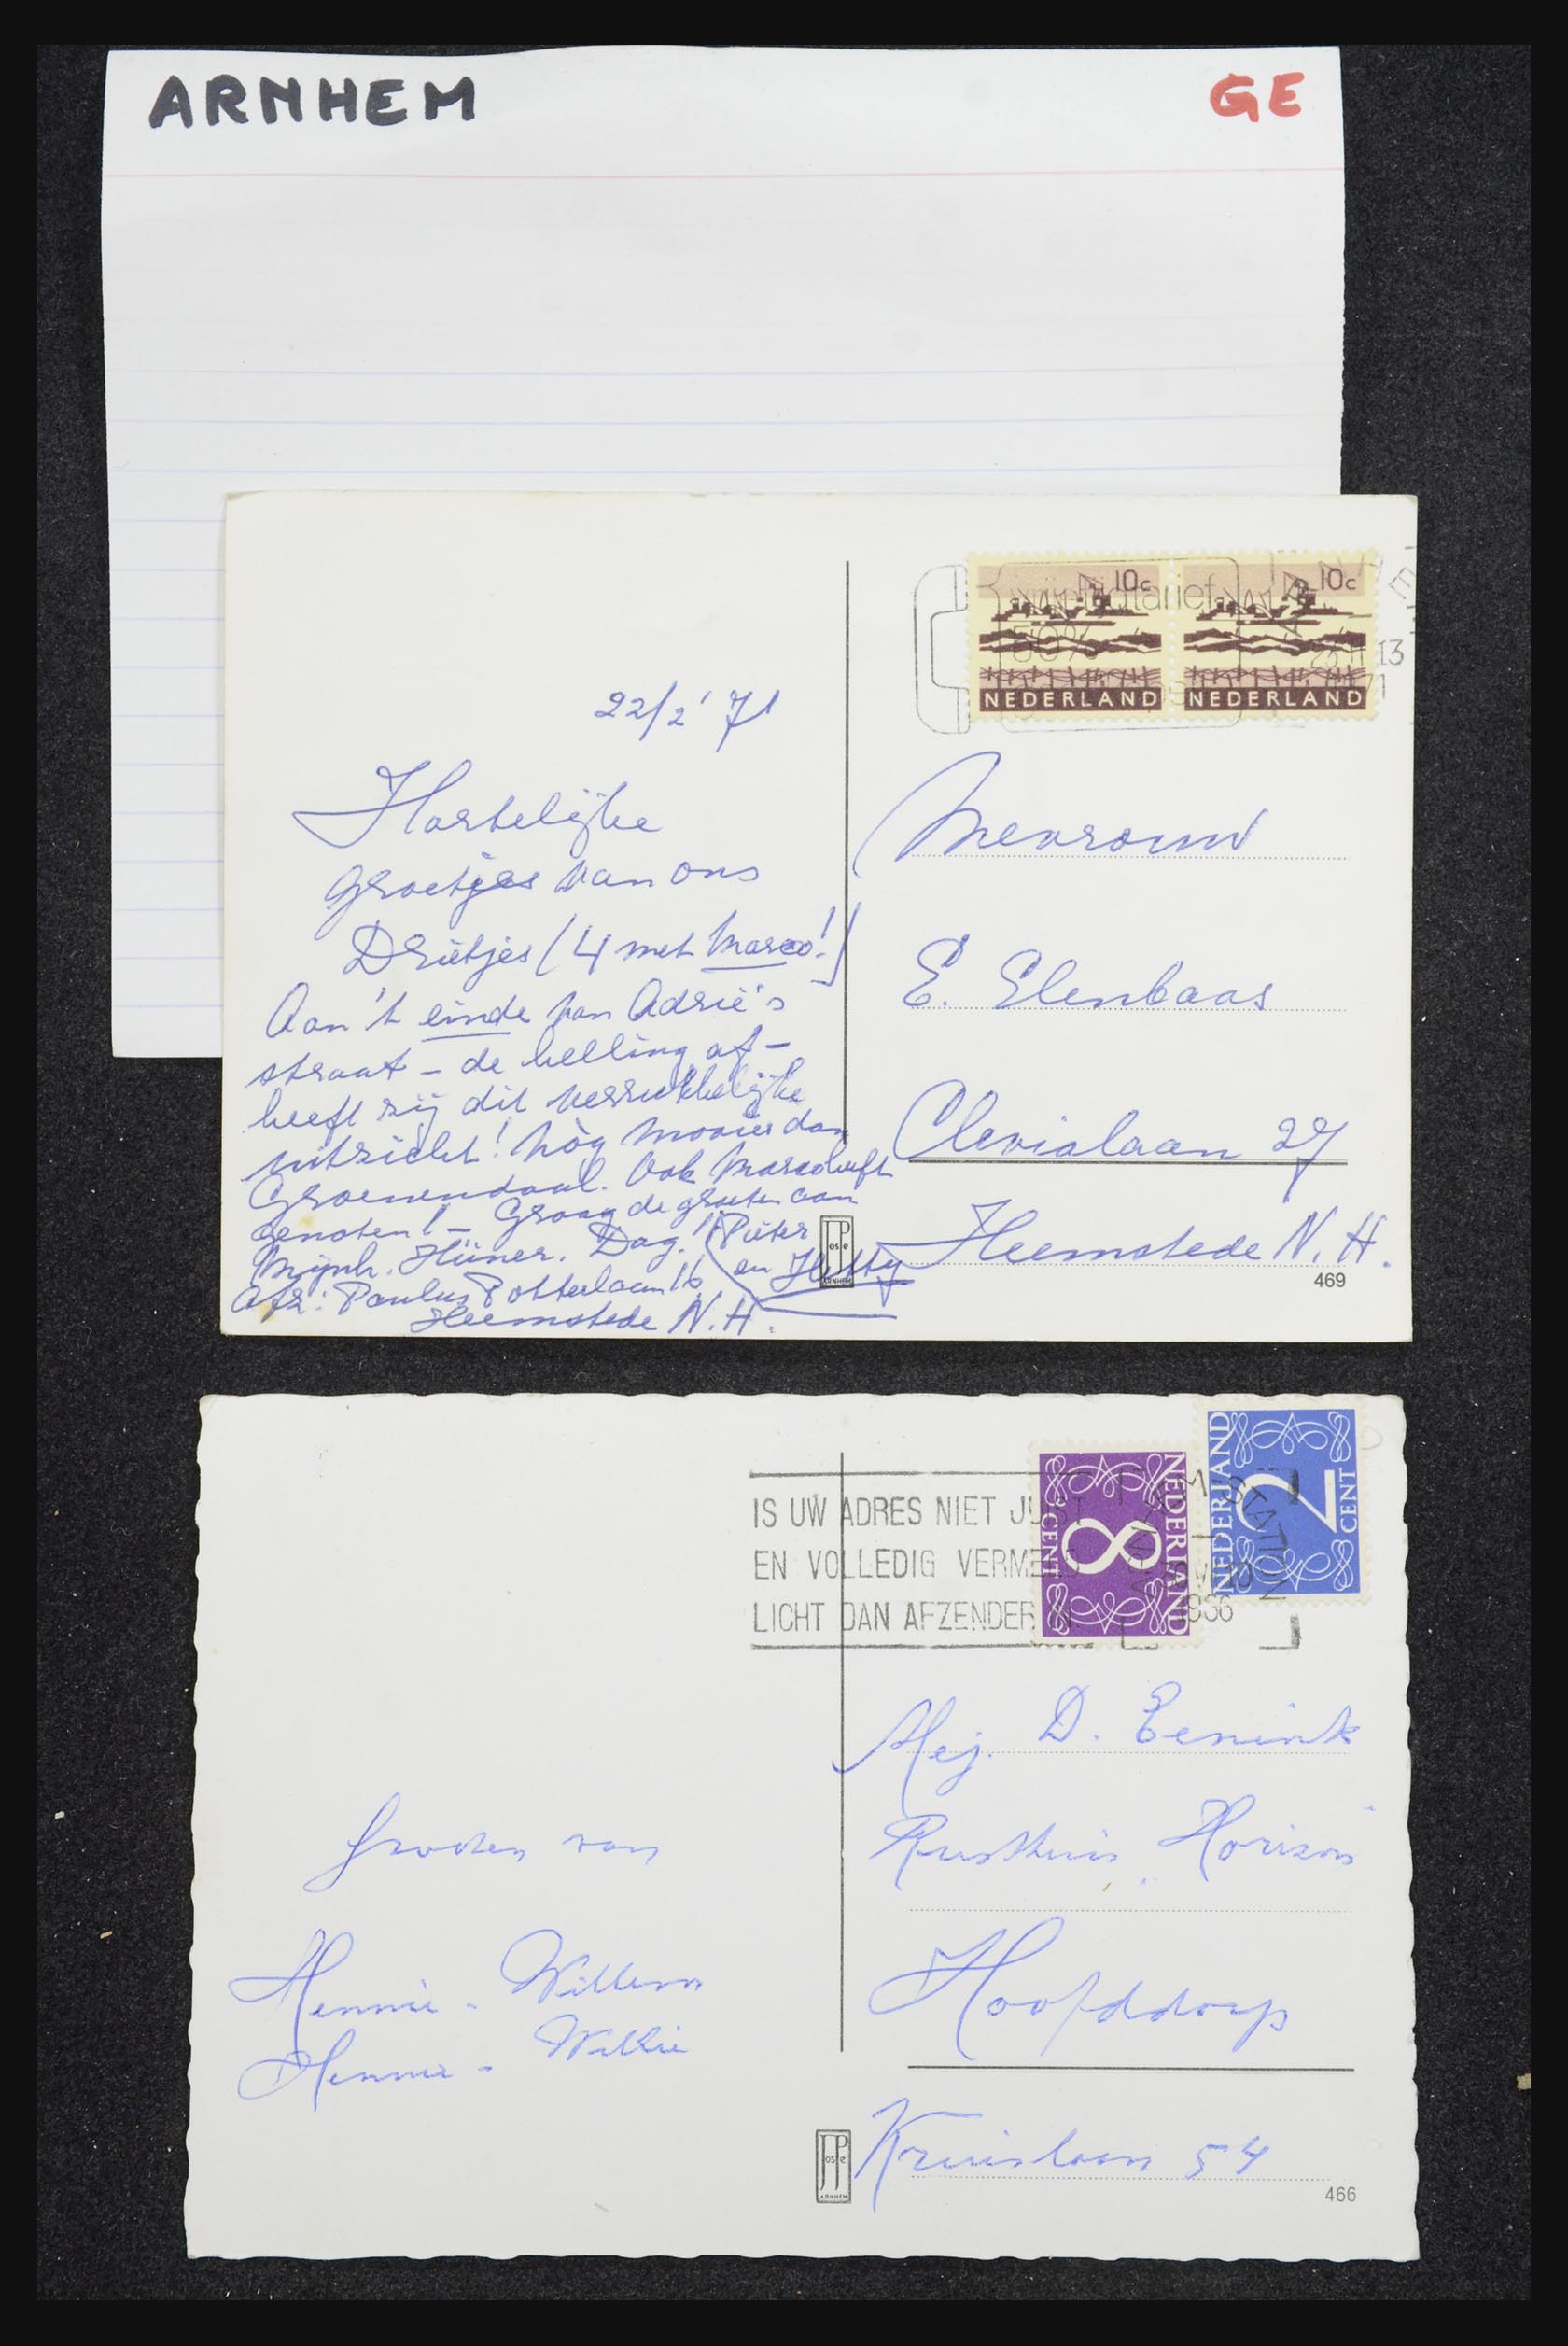 ARNHEM
GE
10c
10c
NEDERLAND
NEDERLAND
50%
13
22/2 '71
Hartelijke
groetjes van ons
Drietjes (4 met Marco!)
Aan 't einde van Adrie's
straat – de helling af –
heeft zij dit verrukkelijke
uitzicht! Nòg mooier dan
Groenendaal. Ook Marco heeft
genoten! – Graag de groeten aan
Mijnh. Hüner. Dag! Pieter
en Hetty
Afz: Paulus Potterlaan 16
Heemstede N.H.
Mevrouw
E. Elenbaas
Clevialaan 27
Heemstede N.H.
Poste
ARNHEM
469
IS UW ADRES NIET JUIST
EN VOLLEDIG VERMELD
LICHT DAN AFZENDER IN
STATION
NEDERLAND
8
CENT
NEDERLAND
2
CENT
Mej. D. Eenink
Rusthuis "Horizon
Hoofddorp
Kruislaan 54
Groeten van
Hennie - Willem
Hennie - Willie
Poste
ARNHEM
466